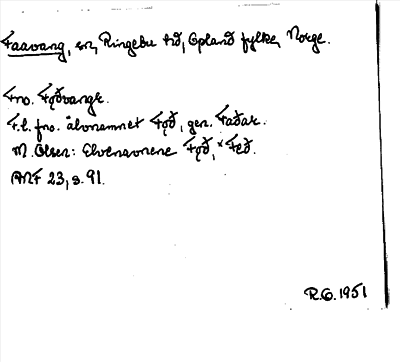 Faavang, sn, Ringebu hd, Opland fylke, Norge.
Fno. Fǫðvangr.
F.l. fno. älvnamnet Fǫð, gen. Faðar.
M. Olsen: Elvenavnene Fǫð, *Feð.
ANF 23, s. 91.
R.O. 1951